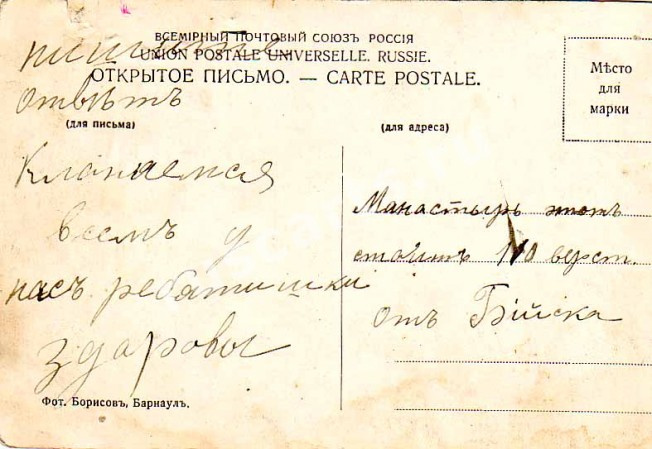 ВСЕМІРНЫЙ ПОЧТОВЫЙ СОЮЗЪ РОССІЯ
UNION POSTALE UNIVERSELLE. RUSSIE.
ОТКРЫТОЕ ПИСЬМО. — CARTE POSTALE.
Мѣсто
для
марки
(для письма)
(для адреса)
пишите
отвѣтъ
Кланяемся
всемъ у
насъ ребятишки
здаровы
Манастырь этотъ
стоитъ верст.
отъ Бійска
Фот. Борисовъ, Барнаулъ.